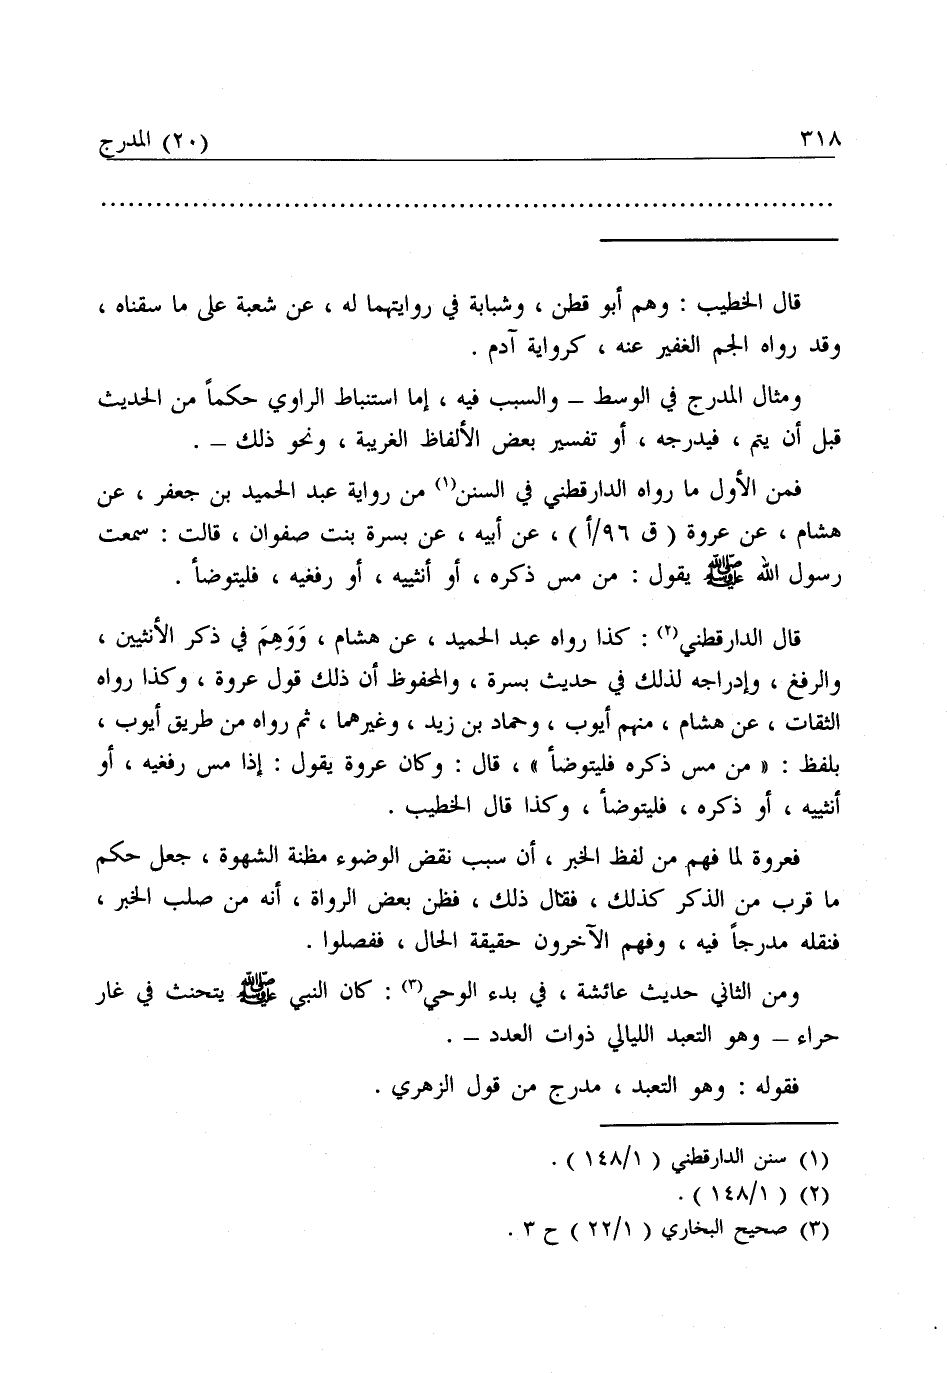 ٣١٨ (٢٠) المدرج
................................................................................
قال الخطيب : وهم أبو قطن ، وشبابة في روايتهما له ، عن شعبة على ما سقناه ،
وقد رواه الجم الغفير عنه ، كرواية آدم .
ومثال المدرج في الوسط – والسبب فيه ، إما استنباط الراوي حكماً من الحديث
قبل أن يتم ، فيدرجه ، أو تفسير بعض الألفاظ الغريبة ، ونحو ذلك – .
فمن الأول ما رواه الدارقطني في السنن(١) من رواية عبد الحميد بن جعفر ، عن
هشام ، عن عروة ( ق ٩٦/أ ) ، عن أبيه ، عن بسرة بنت صفوان ، قالت : سمعت
رسول الله ﷺ يقول : من مس ذكره ، أو أنثييه ، أو رفغيه ، فليتوضأ .
قال الدارقطني(٢) : كذا رواه عبد الحميد ، عن هشام ، وَوَهِمَ في ذكر الأنثيين ،
والرفغ ، وإدراجه لذلك في حديث بسرة ، والمحفوظ أن ذلك قول عروة ، وكذا رواه
الثقات ، عن هشام ، منهم أيوب ، وحماد بن زيد ، وغيرهما ، ثم رواه من طريق أيوب ،
بلفظ : « من مس ذكره فليتوضأ » ، قال : وكان عروة يقول : إذا مس رفغيه ، أو
أنثييه ، أو ذكره ، فليتوضأ ، وكذا قال الخطيب .
فعروة لما فهم من لفظ الخبر ، أن سبب نقض الوضوء مظنة الشهوة ، جعل حكم
ما قرب من الذكر كذلك ، فقال ذلك ، فظن بعض الرواة ، أنه من صلب الخبر ،
فنقله مدرجاً فيه ، وفهم الآخرون حقيقة الحال ، ففصلوا .
ومن الثاني حديث عائشة ، في بدء الوحي(٣) : كان النبي ﷺ يتحنث في غار
حراء – وهو التعبد الليالي ذوات العدد – .
فقوله : وهو التعبد ، مدرج من قول الزهري .
(١) سنن الدارقطني ( ١٤٨/١ ) .
(٢) ( ١٤٨/١ ) .
(٣) صحيح البخاري ( ٢٢/١ ) ح ٣ .